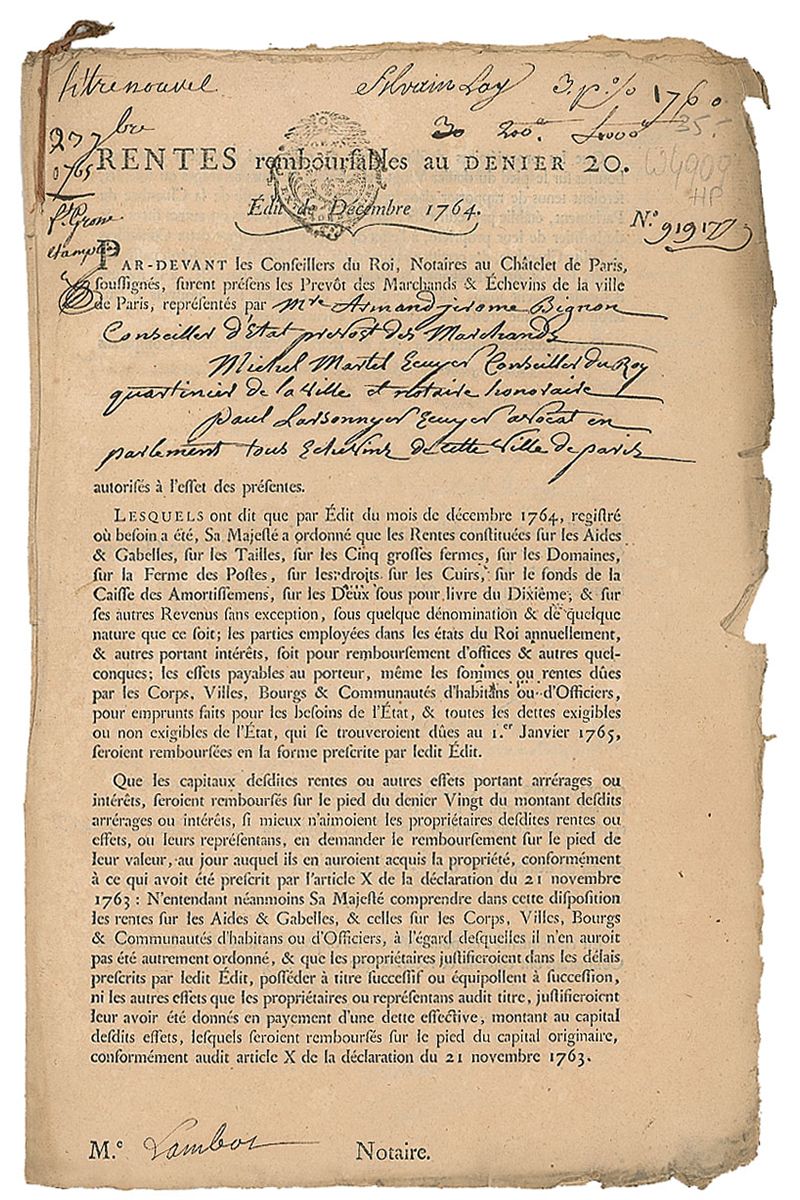 titre nouvel Silvain Lay 3. p. o/o 1760
35-
RENTES remboursables au DENIER 20.
1765
W4909
HP
Édit de Décembre 1764.
N.° 919177
PAR-DEVANT les Conseillers du Roi, Notaires au Châtelet de Paris,
soussignés, furent présens les Prevôt des Marchands & Échevins de la ville
de Paris, représentés par Mre Armand jerome Bignon
Conseiller d'Etat prevost des Marchands
Michel Martel Ecuyer Conseiller du Roy
quartinier de la ville et notaire honoraire
paul Larsonnyer Ecuyer avocat en
parlement tous Echevins de cette ville de paris
autorisés à l'effet des présentes.
LESQUELS ont dit que par Édit du mois de décembre 1764, registré
où besoin a été, Sa Majesté a ordonné que les Rentes constituées sur les Aides
& Gabelles, sur les Tailles, sur les Cinq grosses fermes, sur les Domaines,
sur la Ferme des Postes, sur les droits sur les Cuirs, sur le fonds de la
Caisse des Amortissemens, sur les Deux sous pour livre du Dixième; & sur
ses autres Revenus sans exception, sous quelque dénomination & de quelque
nature que ce soit; les parties employées dans les états du Roi annuellement,
& autres portant intérêts, soit pour remboursement d'offices & autres quel-
conques; les effets payables au porteur, même les sommes ou rentes dûes
par les Corps, Villes, Bourgs & Communautés d'habitans ou d'Officiers,
pour emprunts faits pour les besoins de l'État, & toutes les dettes exigibles
ou non exigibles de l'État, qui se trouveroient dûes au 1.er Janvier 1765,
seroient remboursées en la forme prescrite par ledit Édit.
Que les capitaux desdites rentes ou autres effets portant arrérages ou
intérêts, seroient remboursés sur le pied du denier Vingt du montant desdits
arrérages ou intérêts, si mieux n'aimoient les propriétaires desdites rentes ou
effets, ou leurs représentans, en demander le remboursement sur le pied de
leur valeur, au jour auquel ils en auroient acquis la propriété, conformément
à ce qui avoit été prescrit par l'article X de la déclaration du 21 novembre
1763 : N'entendant néanmoins Sa Majesté comprendre dans cette disposition
les rentes sur les Aides & Gabelles, & celles sur les Corps, Villes, Bourgs
& Communautés d'habitans ou d'Officiers, à l'égard desquelles il n'en auroit
pas été autrement ordonné, & que les propriétaires justifieroient dans les délais
prescrits par ledit Édit, posséder à titre successif ou équipollent à succession,
ni les autres effets que les propriétaires ou représentans audit titre, justifieroient
leur avoir été donnés en payement d'une dette effective, montant au capital
desdits effets, lesquels seroient remboursés sur le pied du capital originaire,
conformément audit article X de la déclaration du 21 novembre 1763.
M.e Lambot Notaire.